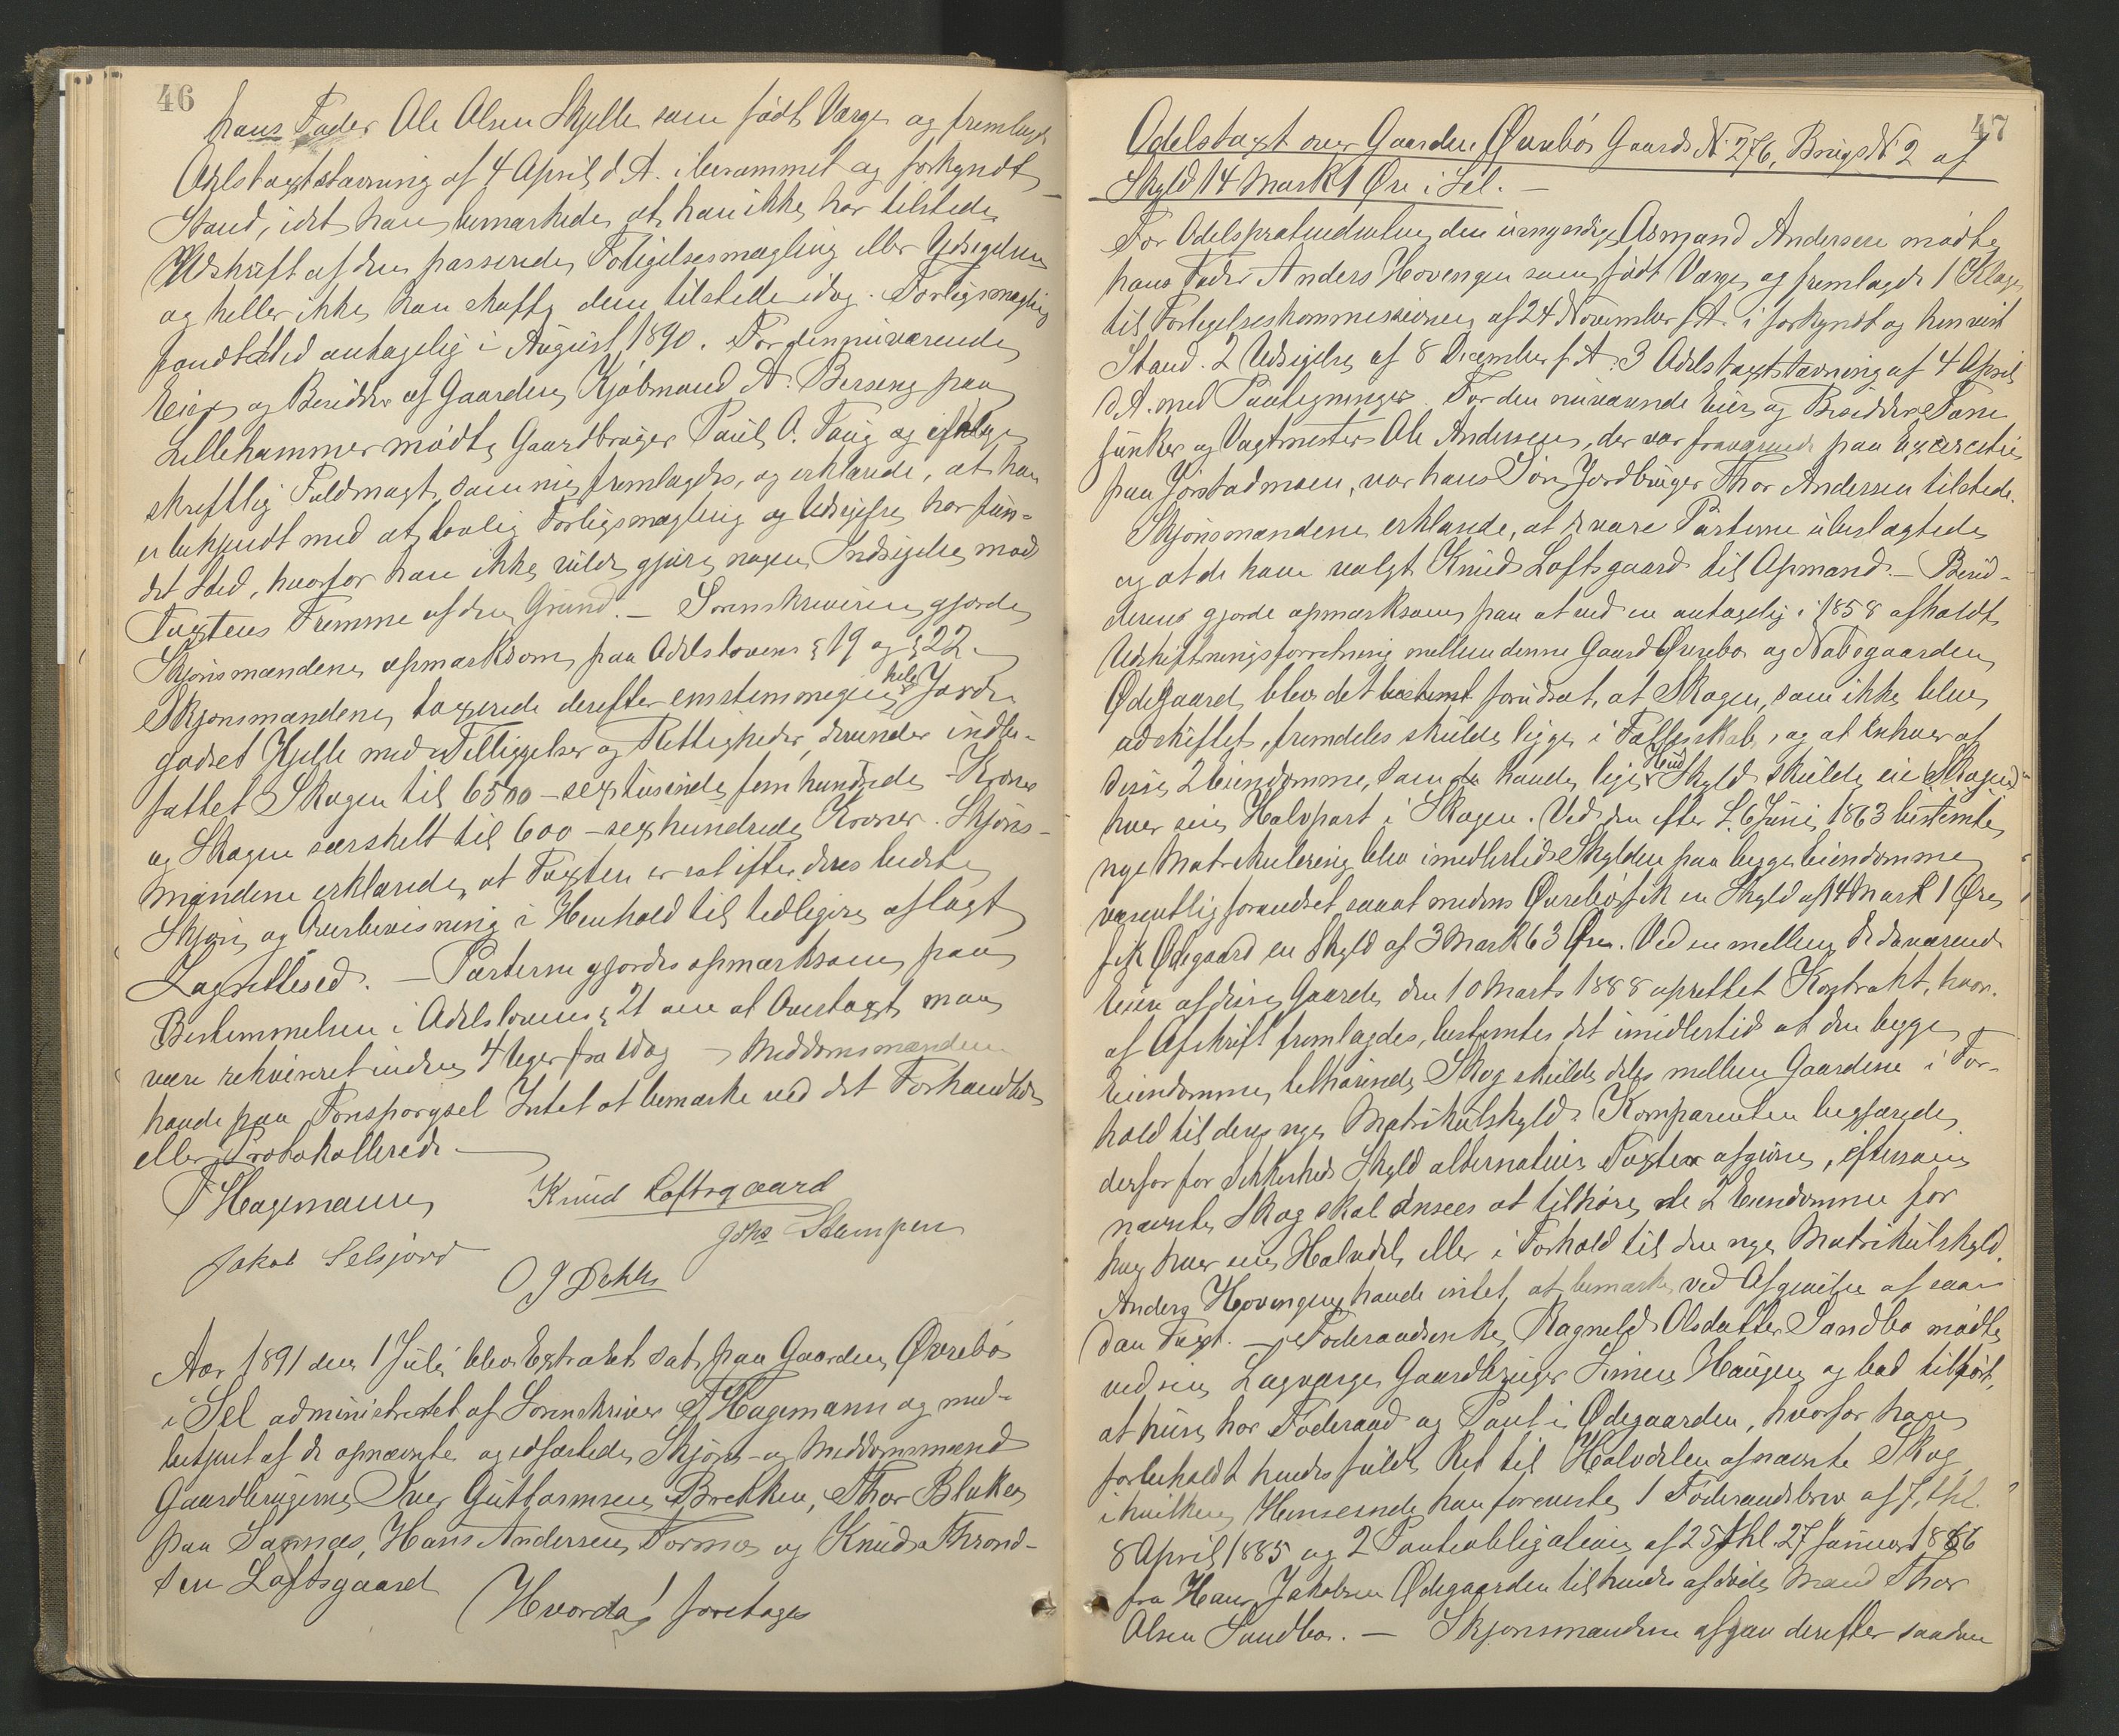 46
hans Fader Ole Olsen Kjelle som født Værge og fremlagde
Odelstaxtstævning af 4 April d. A. i berammet og forkyndt
Stand, idet han bemærkede, at han ikke har tilstede
Udskrift af den passerede Forligelsesmægling eller Udsigelsen
og heller ikke kan skaffe dem tilstede idag. Forligsmægling
fandt Sted antagelig i August 1890. For den nuværende
Eier og Besidder af Gaarden Kjøbmand A. Berseng paa
Lillehammer mødte Gaardbruger Paul O. Taug og ifølge
skriftlig Fuldmagt, som nu fremlagdes, og erklærede, at han
er bekjendt med at lovlig Forligsmægling og Udsigelse har fun-
det Sted, hvorfor han ikke vilde gjøre nogen Indsigelse mod
Taxtens Fremme af den Grund. — Sorenskriveren gjorde
Skjønsmændene opmærksom paa Odelslovens § 19 og § 22. —
Skjønsmændene taxerede derefter enstemmigen hele Jorde-
godset Kjelle med Tilliggelser og Rettigheder, derunder indbe-
fattet Skogen til 6500 – sextusinde fem hundrede – Kroner
og Skogen særskelt til 600 – sexhundrede Kroner. Skjøns-
mændene erklærede, at Taxten er sat efter deres bedste
Skjøn og Overbevisning i Henhold til tidligere aflagt
Lagrettesed. — Parterne gjordes opmærksom paa
Bestemmelsen i Odelslovens § 21 om at Overtaxt maa
være rekvireret inden 4 Uger fra idag – Meddomsmændene
havde paa Forespørgsel Intet at bemærke ved det Forhandlede
eller Protokollerede. —
T Hagemann Knud Loftsgaard
Johs Stampen
Jakob Selsjord
O J Dahle
Aar 1891 den 1 Juli blev Extraret sat paa Gaarden Øvrebø
i Sel administreret af Sorenskriver T Hagemann og med-
betjent af de opnævnte og edfæstede Skjøns- og Meddomsmænd
Gaardbrugerne Iver Guttormsen Brekken, Thor Bleken
paa Sannes, Hans Andersen Formo og Knud Thrond-
sen Loftsgaard
Hvorda! foretages
47
Odelstaxt over Gaarden Øvrebø Gaards No 276, Brugs No 2 af
Skyld 14 Mark 1 Øre i Sel. —
For Odelsprætendenten, den umyndige Asmand Andersen mødte
hans Fader Anders Hovengen som født Værge, og fremlagde 1 Klage
til Forligelseskommissionen af 24 November f. A. i forkyndt og henvist
Stand. 2 Udsigelse af 8 December f. A. 3 Odelstaxtstævning af 4 April
d. A. med Paategninger. For den nuværende Eier og Besidder Fane
junker og Vagtmester Ole Andersen, der var fraværende paa Exercitie
paa Jørstadmoen, var hans Søn Jordbruger Thor Andersen tilstede.
Skjønsmændene erklærede, at de vare Parterne ubeslægtede
og at de have valgt Knud Loftsgaard til Opmand. – Besid-
deren gjorde opmærksom paa at ved en antagelig i 1858 afholdt
Udskiftningsforretning mellem denne Gaard Øvrebø og Nabogaarden
Ødegaard blev det bestemt forudsat, at Skogen, som ikke blev
udskiftet, fremdeles skulde ligge i Fællesskab, og at Enhver af
disse 2 Eiendomme, som da havde lige Hud Skyld skulde eie Skogen
hver sin Halvpart i Skogen. Ved den efter L. 6 Juni 1863 bestemte
nye Matrikulering blev imedlertid Skylden paa begge Eiendomme
væsentlig forandret saaat medens Øvrebø fik en Skyld af 14 Mark 1 Øre
fik Ødegaard en Skyld af 3 Mark 63 Øre. Ved en mellem de daværende
Eiere af disse Gaarde den 10 Marts 1888 oprettet Kontrakt, hvor-
af Afskrift fremlagdes, bestemtes det imidlertid at den begge
Eiendomme tilhørende Skog skulde deles mellem Gaardene i For-
hold til deres nye Matrikulskyld. Komparenten begjærede
derfor for Sikkerheds Skyld alternative Taxter afgivne, eftersom
nævnte Skog skal ansees at tilhøre de 2 Eiendomme for
hver sin Halvdel, eller i Forhold til den nye Matrikulskyld.
Anders Hovengen havde intet at bemærke ved Afgivelse af saa-
dan Taxt. — Føderaadsenke Ragnild Olsdatter Sandbo mødte
ved sin Lagværge Gaardbruger Simen Haugen og bad tilført,
at hun har Føderaad og Pant i Ødegaarden, hvorfor han
forbeholdt hendes fulde Ret til Halvdelen af nævnte Skog
i hvilken Henseende han foreviste 1 Føderaadsbrev af 7, thl.
8 April 1885 og 2 Panteobligation af 25 thl. 27 Januar 1886
fra Hans Jakobsen Ødegaarden til hendes afdøde Mand Thor
Olsen Sandbo. — Skjønsmændene afgav derefter saadan